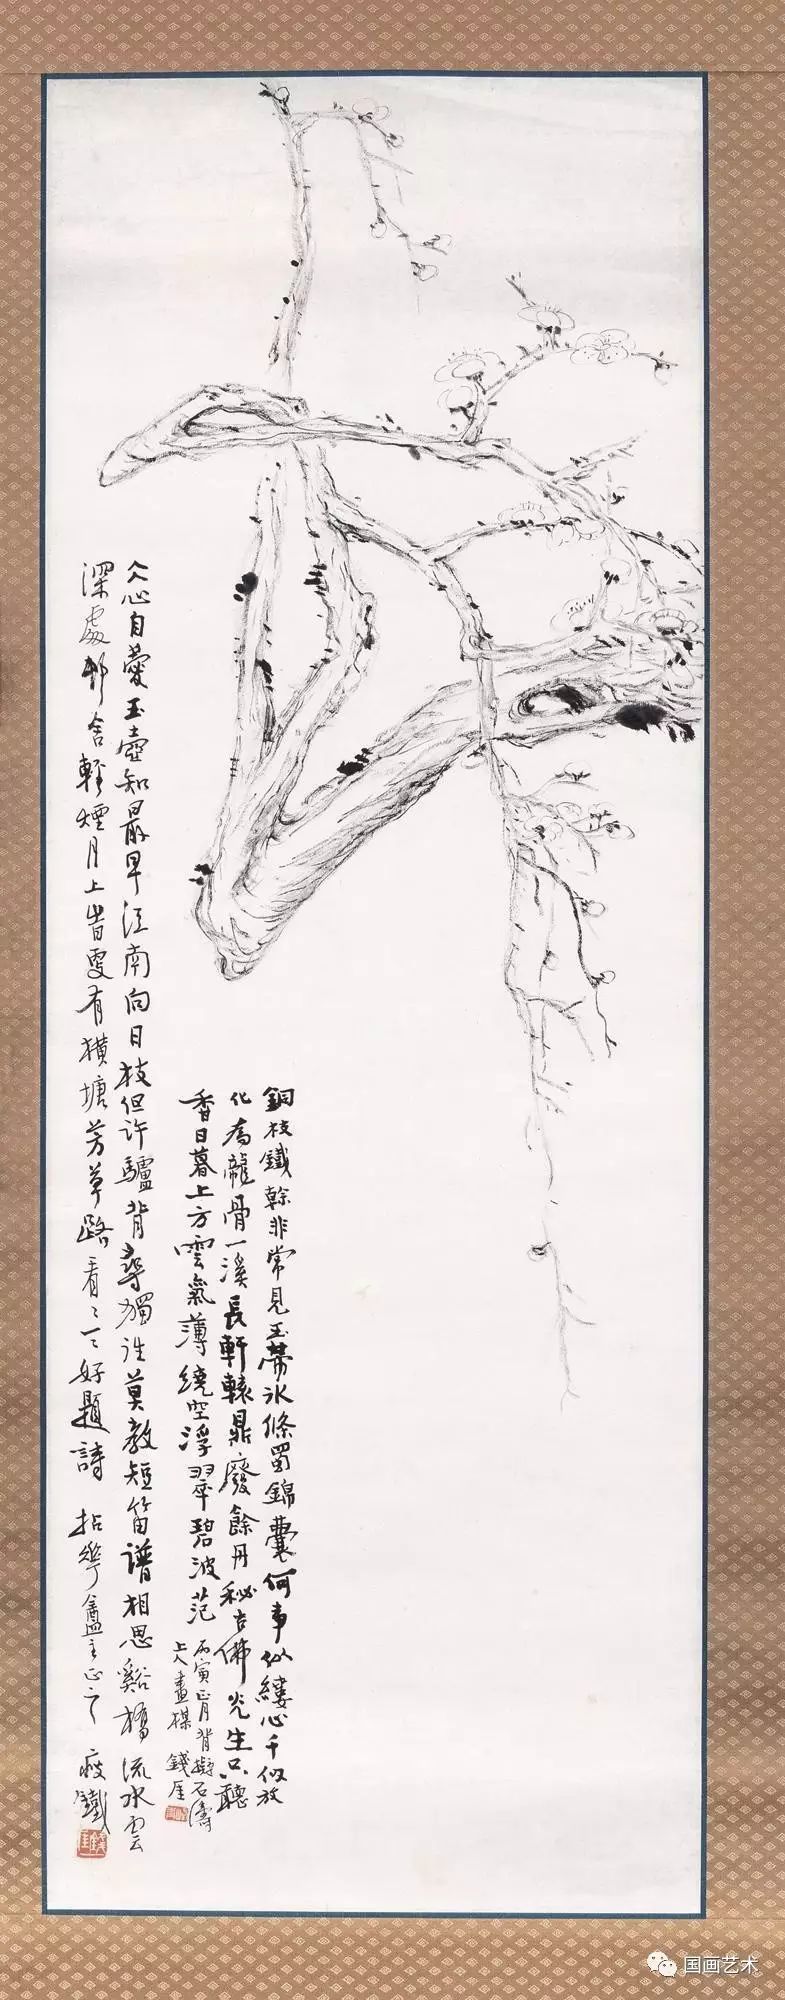 銅枝鐵榦非常見玉蒂冰條蜀錦囊何事似縷心千似放
化為龍骨一溪長軒轅鼎廢餘丹秘古佛光生只聽
香日暮上方雲氣薄繞空浮翠碧波茫
丙寅正月背擬石濤
上人畫楳 錢厓
仌心自蘊玉壺知最早江南向日枝但許驢背尋獨往莫教短笛譜相思谿橋流水雲
深處邨舍輕煙月上時更有橫塘芳草路看〻一〻好題詩 拈華盦主正之 瘦鐵
国画艺术